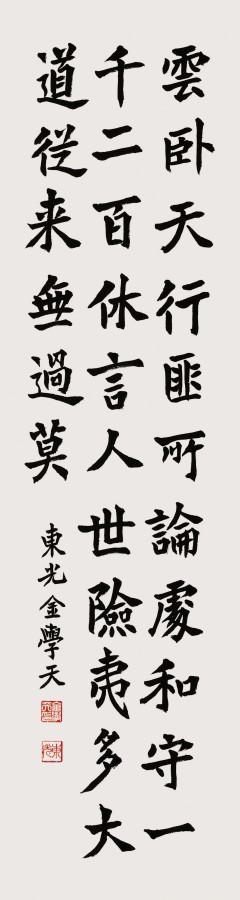 雲卧天行匪所論處和守一
千二百休言人世險夷多大
道從来無過莫
東光金學天